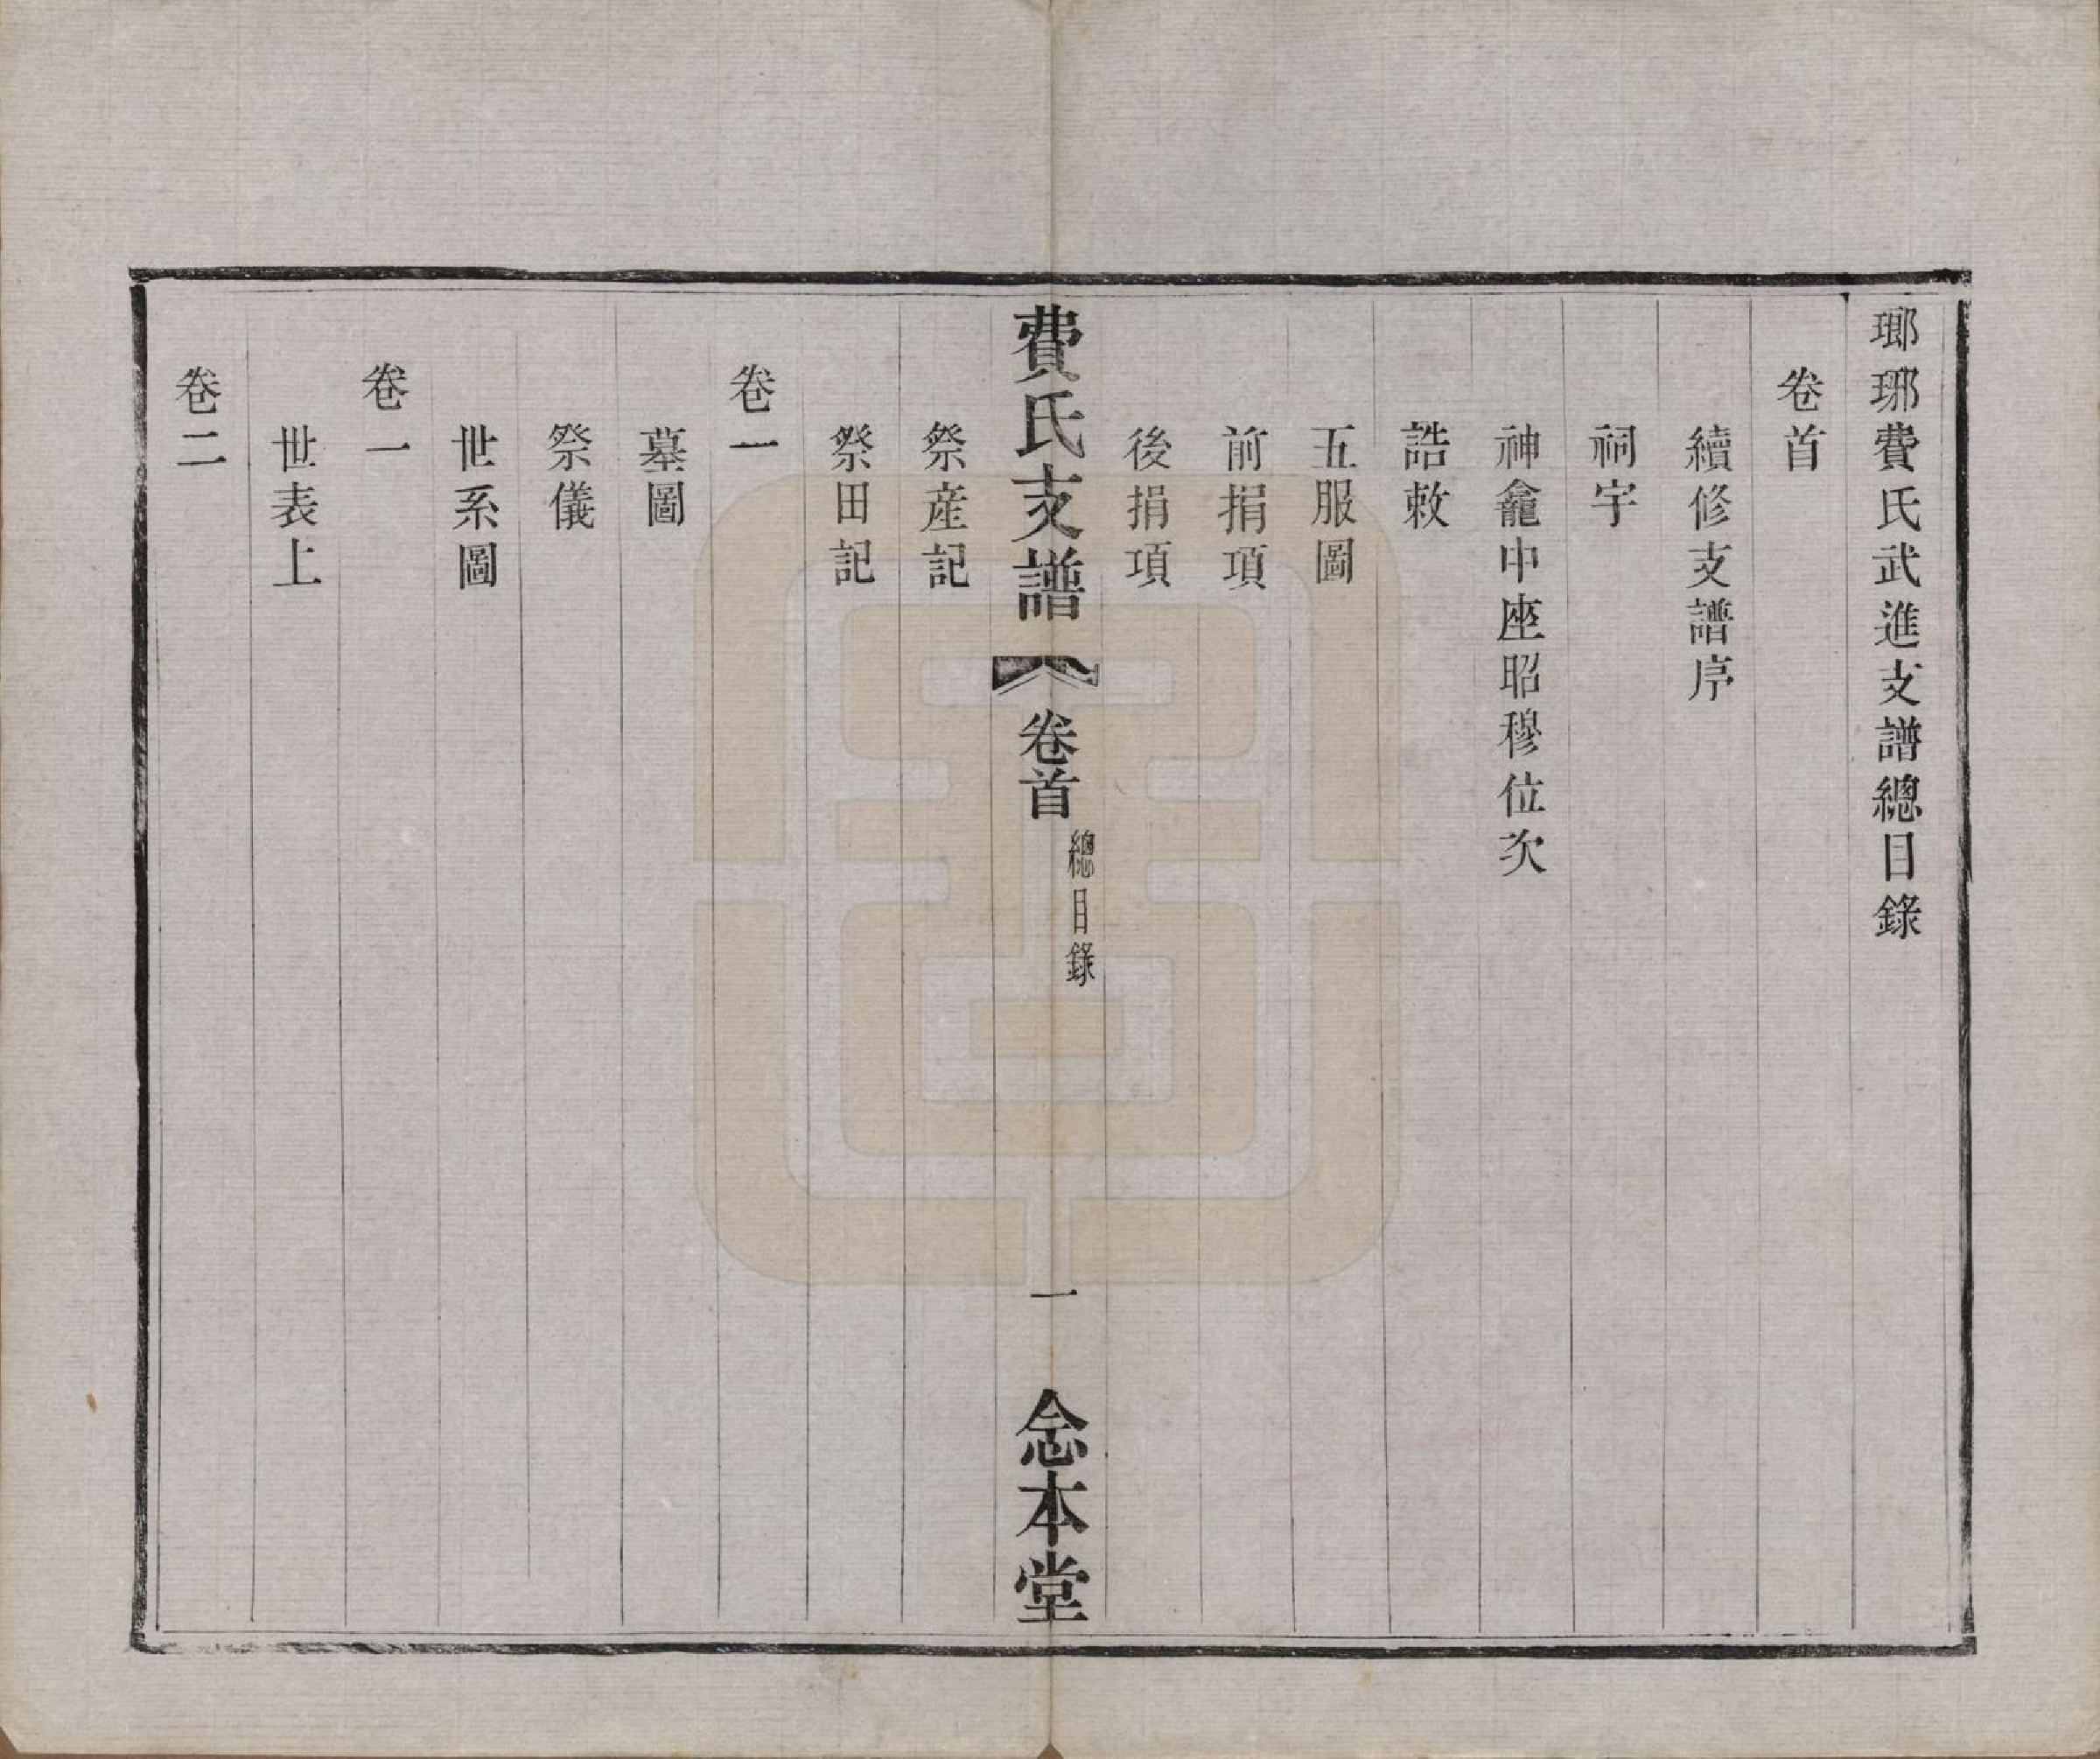 瑯琊費氏武進支譜總目錄
卷首
續修支譜序
祠宇
神龕中座昭穆位次
誥敕
五服圖
前捐項
後捐項
費氏支譜
卷首
總目錄
一
念本堂
祭産記
祭田記
卷一
墓圖
祭儀
世系圖
卷一
世表上
卷二